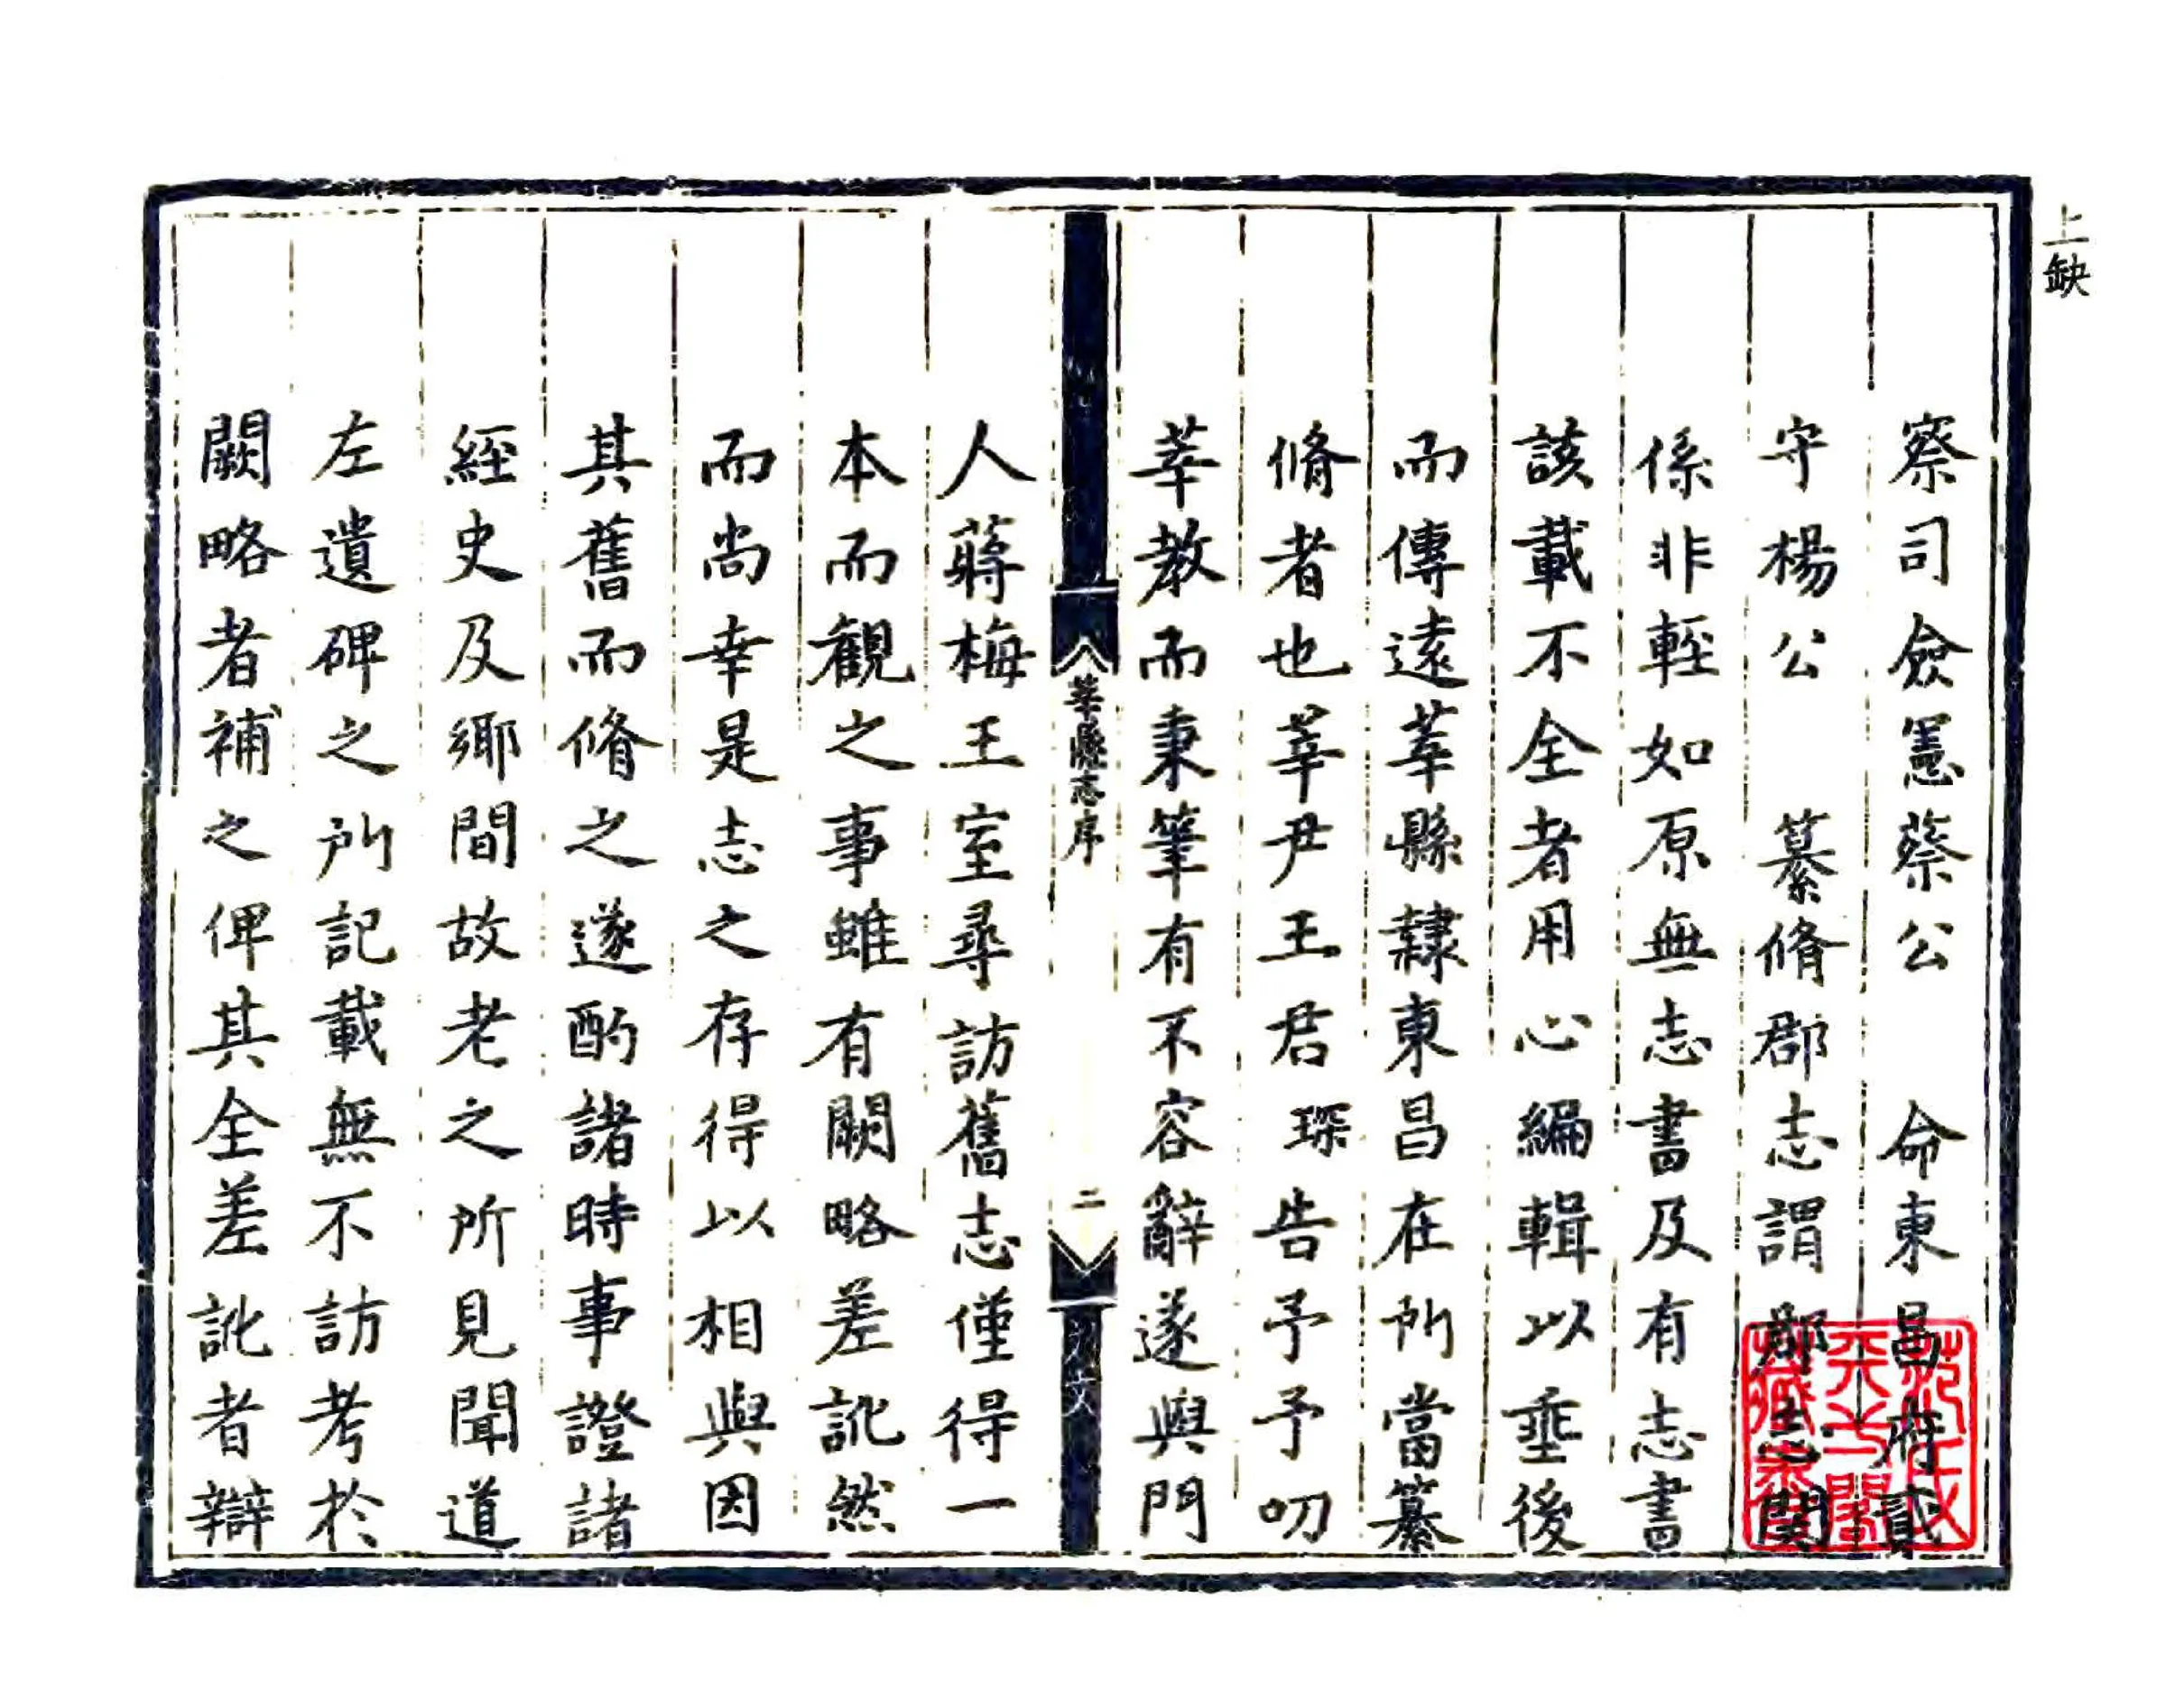 上缺
察司僉憲蔡公　命東昌府貳
守楊公　纂脩郡志謂郡志関
係非輕如原無志書及有志書
該載不全者用心編輯以垂後
而傳遠莘縣隸東昌在所當纂
脩者也莘尹王君琛告予予叨
莘教而秉筆有不容辭遂與門
莘縣志序
二
人蔣梅王室尋訪舊志僅得一
本而觀之事雖有闕略差訛然
而尚幸是志之存得以相與因
其舊而脩之遂酌諸時事證諸
經史及鄉間故老之所見聞道
左遺碑之所記載無不訪考於
闕略者補之俾其全差訛者辯